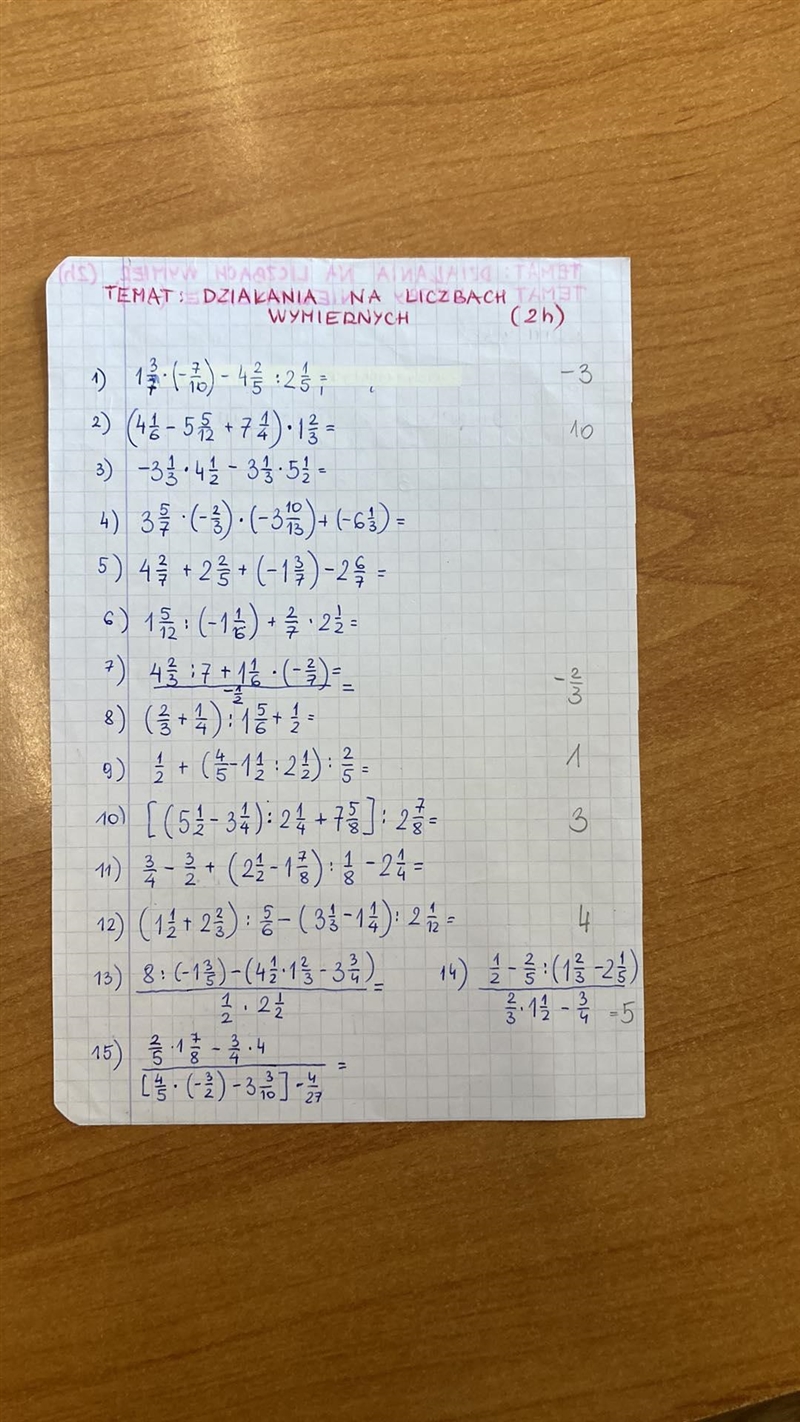 TEMAT: DZIAŁANIA NA LICZBACH WYMIER (2h)
TEMAT: DZIAŁANIA NA LICZBACH
WYMIERNYCH (2h)
1) 1 3/7 · (-7/10) - 4 2/5 : 2 1/5 = -3
2) (4 1/6 - 5 5/12 + 7 1/4) · 1 2/3 = 10
3) -3 1/3 · 4 1/2 - 3 1/3 · 5 1/2 =
4) 3 5/7 · (-2/3) · (-3 10/13) + (-6 1/3) =
5) 4 2/7 + 2 2/5 + (-1 3/7) - 2 6/7 =
6) 1 5/12 : (-1 1/6) + 2/7 · 2 1/2 =
7) (4 2/3 : 7 + 1 1/6 · (-2/7) =) / (-1/2) = -2/3
8) (2/3 + 1/4) : 1 5/6 + 1/2 =
9) 1/2 + (4/5 - 1 1/2 : 2 1/2) : 2/5 = 1
10) [(5 1/2 - 3 1/4) : 2 1/4 + 7 5/8] : 2 7/8 = 3
11) 3/4 - 3/2 + (2 1/2 - 1 7/8) : 1/8 - 2 1/4 =
12) (1 1/2 + 2 2/3) : 5/6 - (3 1/3 - 1 1/4) : 2 1/12 = 4
13) (8 : (-1 3/5) - (4 1/2 · 1 2/3 - 3 3/4)) / (1/2 · 2 1/2) = 14) (1/2 - 2/5 : (1 2/3 - 2 1/5)) / (2/3 · 1 1/2 - 3/4) = 5
15) (2/5 · 1 7/8 - 3/4 · 4) / ([4/5 · (-3/2) - 3 3/10] · 4/27) =